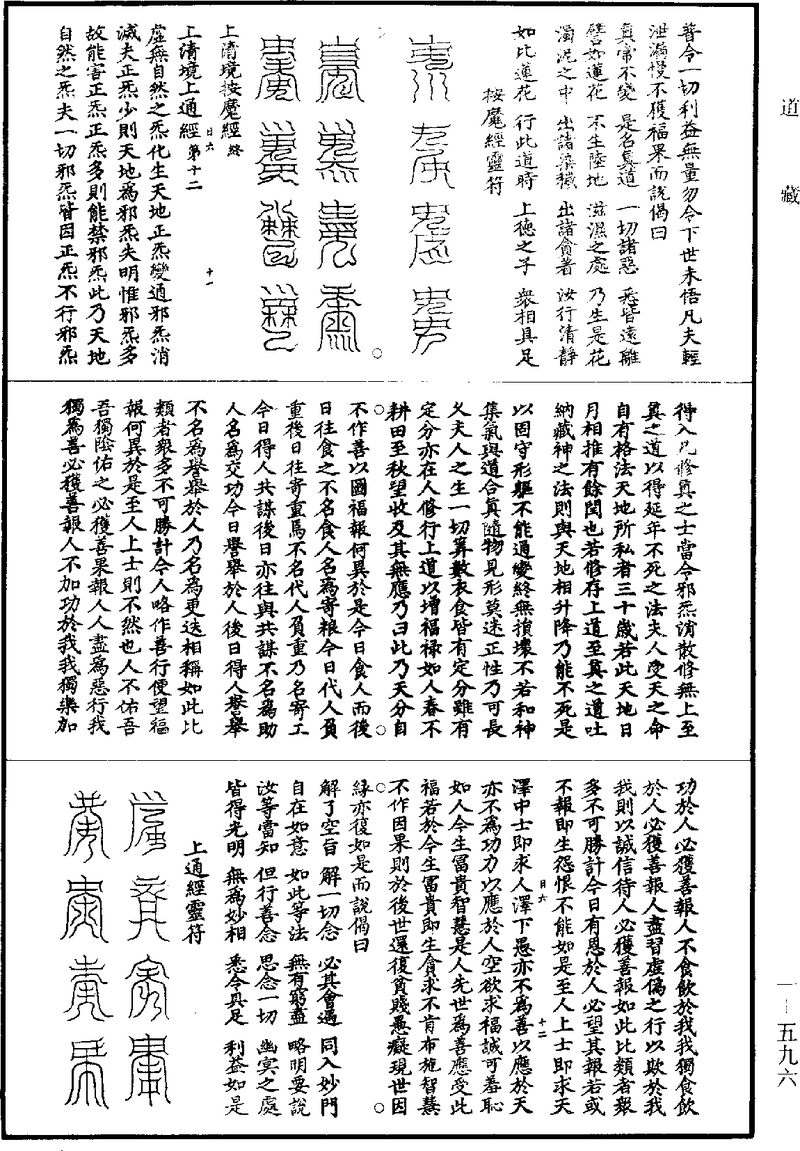 道藏
普令一切利益無量勿令下世未悟凡夫輕
泄漏慢不獲福果而說偈曰
真常不變 是名真道 一切諸惡 悉皆遠離
譬如蓮花 不生陸地 滋濕之處 乃生是花
濁泥之中 出諸染穢 出諸貪著 汝行清靜
如比蓮花 行此道時 上德之子 衆相具足
按魔經靈符
上清境按魔經 終
上清境上通經 第十二
虛無自然之炁化生天地正炁變通邪炁消
滅夫正炁少則天地為邪炁夫明惟邪炁多
故能害正炁正炁多則能禁邪炁此乃天地
自然之炁夫一切邪炁皆因正炁不行邪炁
日六 十一
得入凡修真之士當令邪炁消散修無上至
真之道以得延年不死之法夫人受天之命
自有格法天地所私者三十歲若此天地日
月相推有餘閏也若修存上道至真之道吐
納藏神之法則與天地相升降乃能不死是
以固守形軀不能通變終無損壞不若和神
集氣與道合真隨物見形莫迷正性乃可長
久夫人之生一切算數衣食皆有定分雖有
定分亦在人修行上道以增福祿如人春不
耕田至秋望收及其無應乃曰此乃天分自
不作善以圖福報何異於是今日食人而後
日往食之不名食人名為寄粮今日代人負
重後日往寄重焉不名代人負重乃名寄工
今日得人共謀後日亦往與共謀不名為助
人名為交功今日譽舉於人後日得人譽舉
不名為譽舉於人乃名為更迭相稱如此比
類者衆多不可勝計今人略作善行便望福
報何異於是至人上士則不然也人不佑吾
吾獨陰佑之必獲善果報人人盡為惡行我
獨為善必獲善報人不加功於我我獨樂加
功於人必獲善報人不食飲於我我獨食飲
於人必獲善報人盡習虛偽之行以欺於我
我則以誠信待人必獲善報如此比類者衆
多不可勝計今日有恩於人必望其報若或
不報即生怨恨不能如是至人上士即求天
澤中士即求人澤下愚亦不為善以應於天
日六 十二
亦不為功力以應於人空欲求福誠可羞恥
如人今生富貴智慧是人先世為善應受此
福若於今生富貴即生貪求不肯布施智慧
不作因果則於後世還復貧賤愚癡現世因
緣亦復如是而說偈曰
解了空旨 解一切念 必其會遇 同入妙門
自在如意 如此等法 無有窮盡 略明要說
汝等當知 但行善念 思念一切 幽冥之處
皆得光明 無為妙相 悉令具足 利益如是
上通經靈符
一－五九六